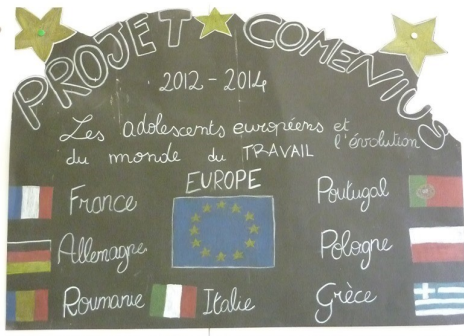 PROJET COMENIUS
2012-2014
Les adolescents européens et l'évolution
du monde du TRAVAIL
EUROPE
France
Allemagne
Roumanie
Italie
Portugal
Pologne
Grèce